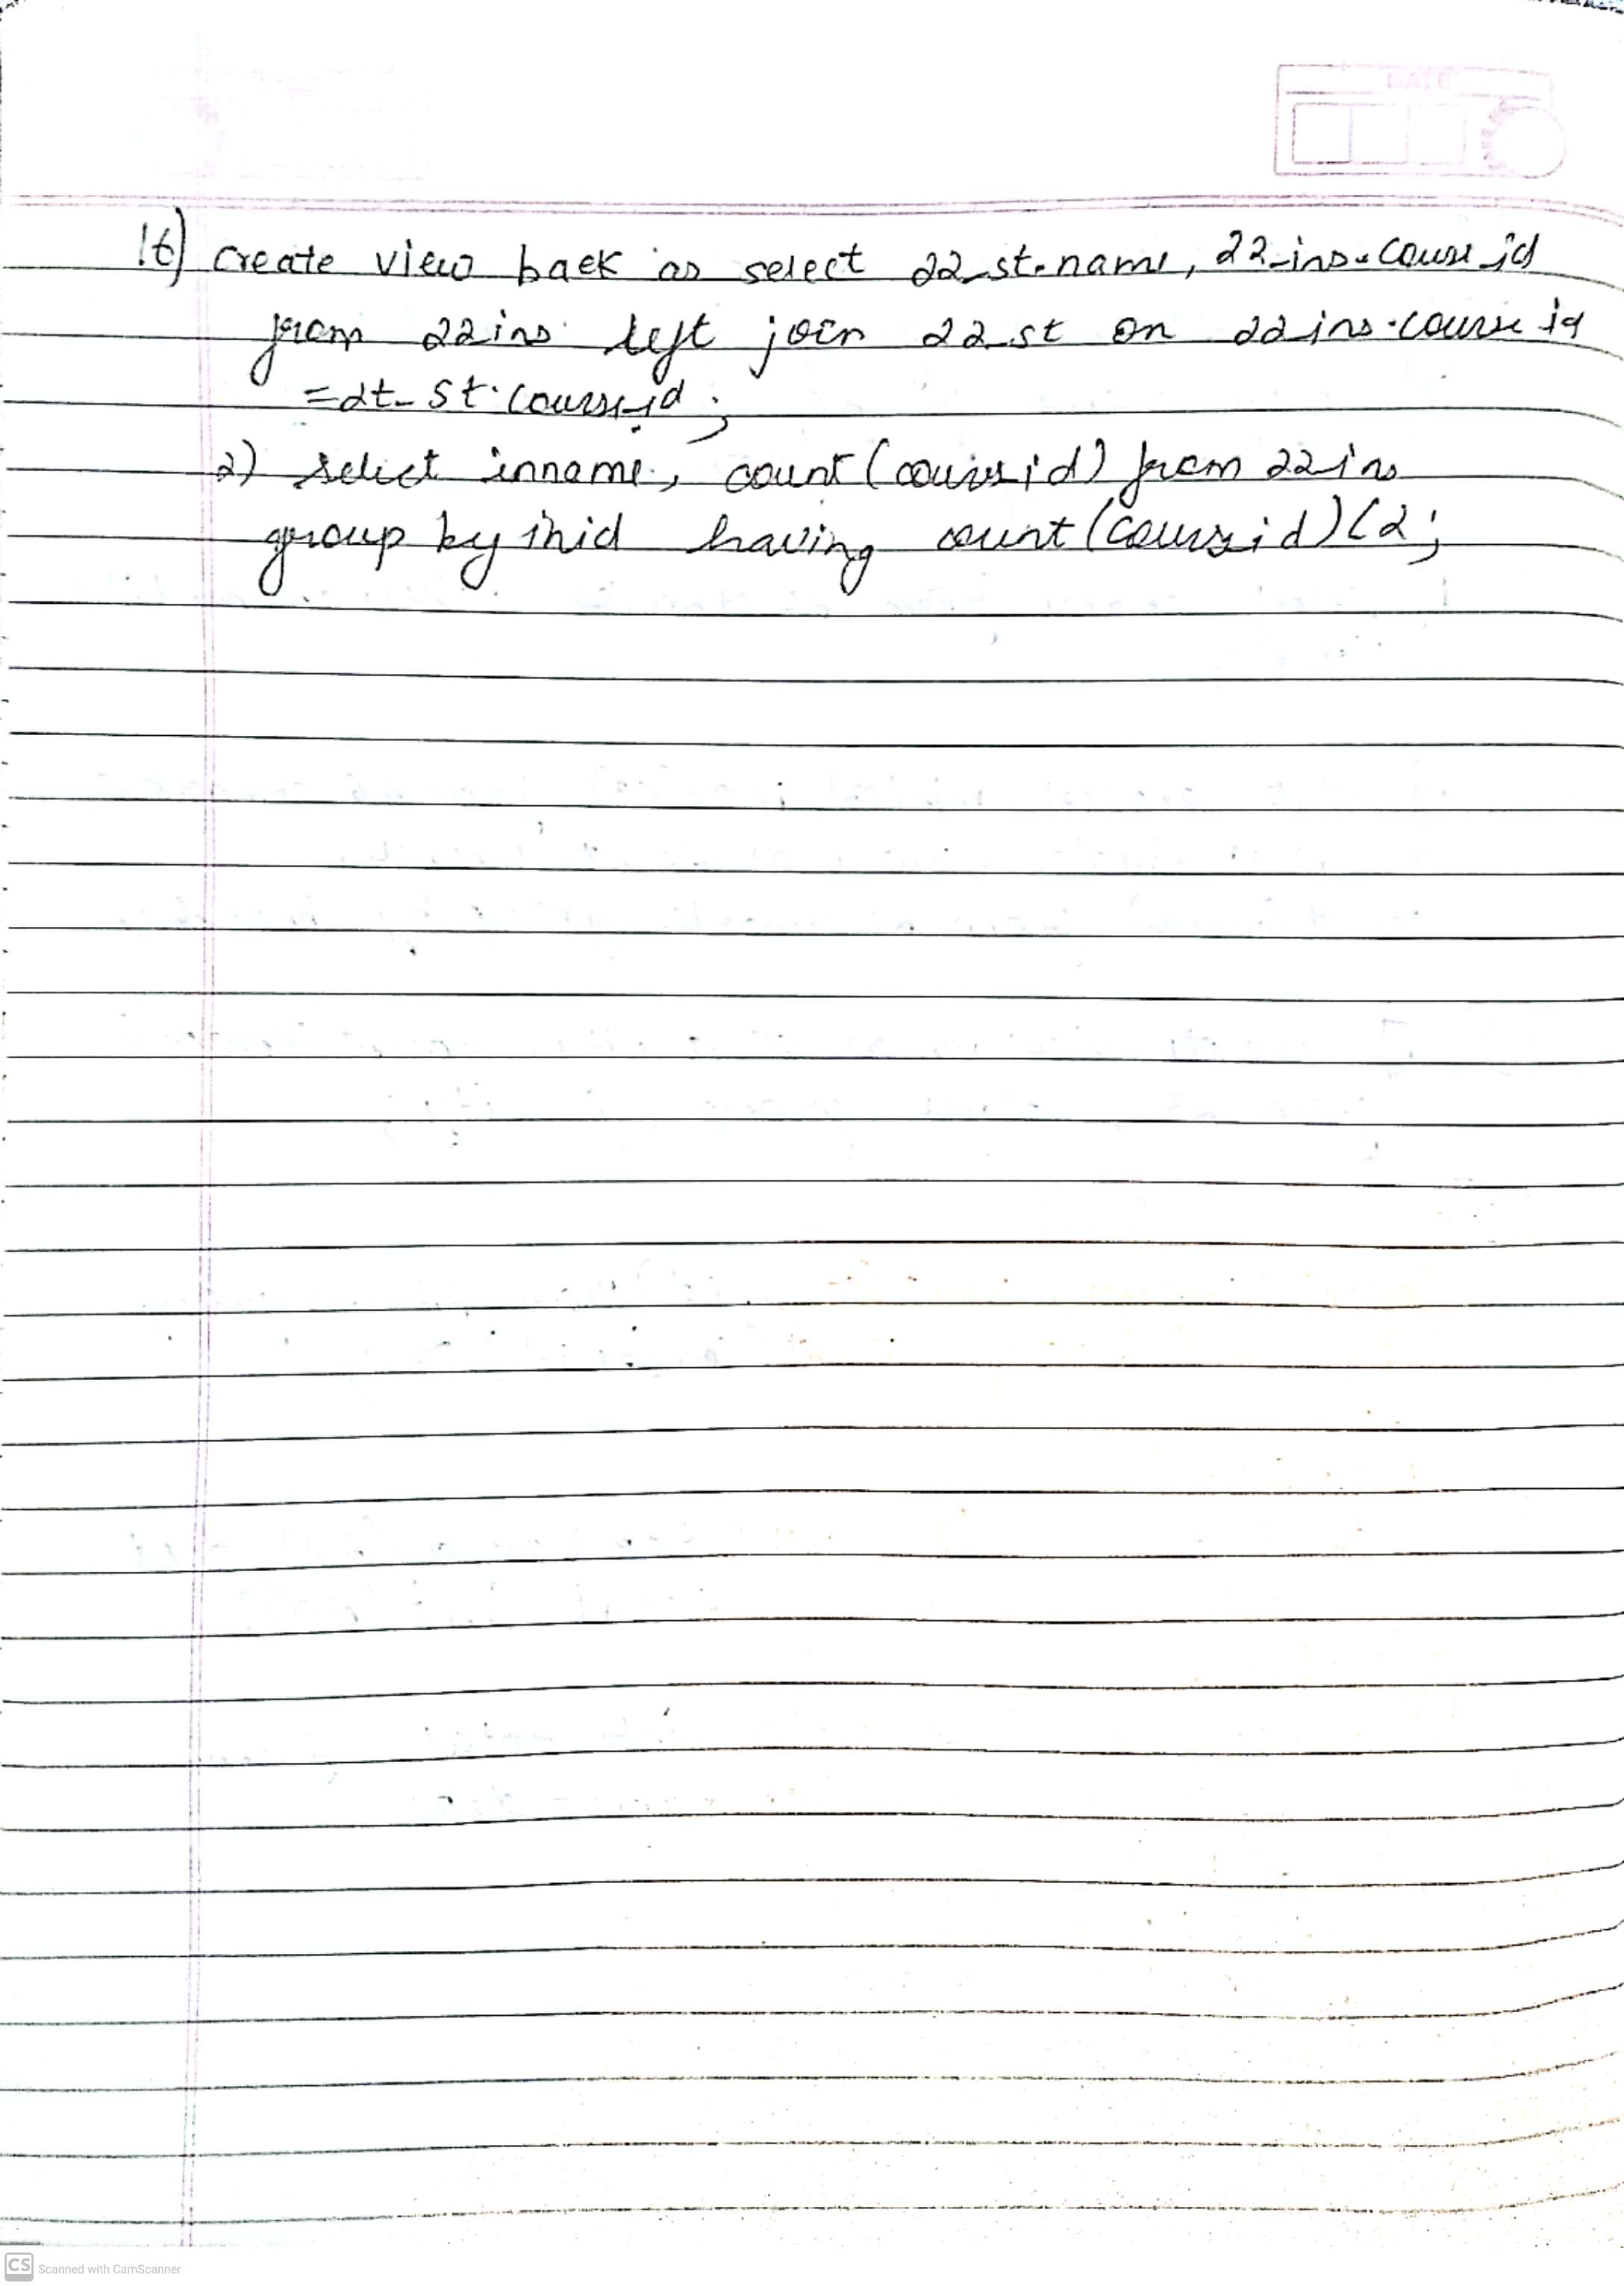 DATE
16) create view back as select 22_st.name, 22_ins.course_id
from 22ins left join 22_st on 22ins.course id
=2t_st.course_id ;
2) select inname, count(courseid) from 22ins
group by inid having count(courseid)<2;
CS Scanned with CamScanner